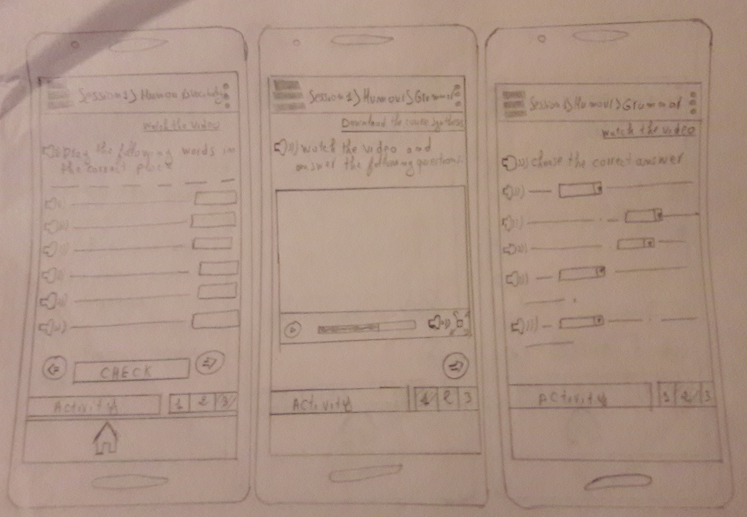 Session 1 > Humour
watch the video
Drag the following words in
the correct place
CHECK
Activity
1 2 3
Session 1 > Humour > Grammar
Download the course synthesis
watch the video and
answer the following questions
Activity
1 2 3
Session 1 > Humour > Grammar
watch the video
choose the correct answer
Activity
1 2 3